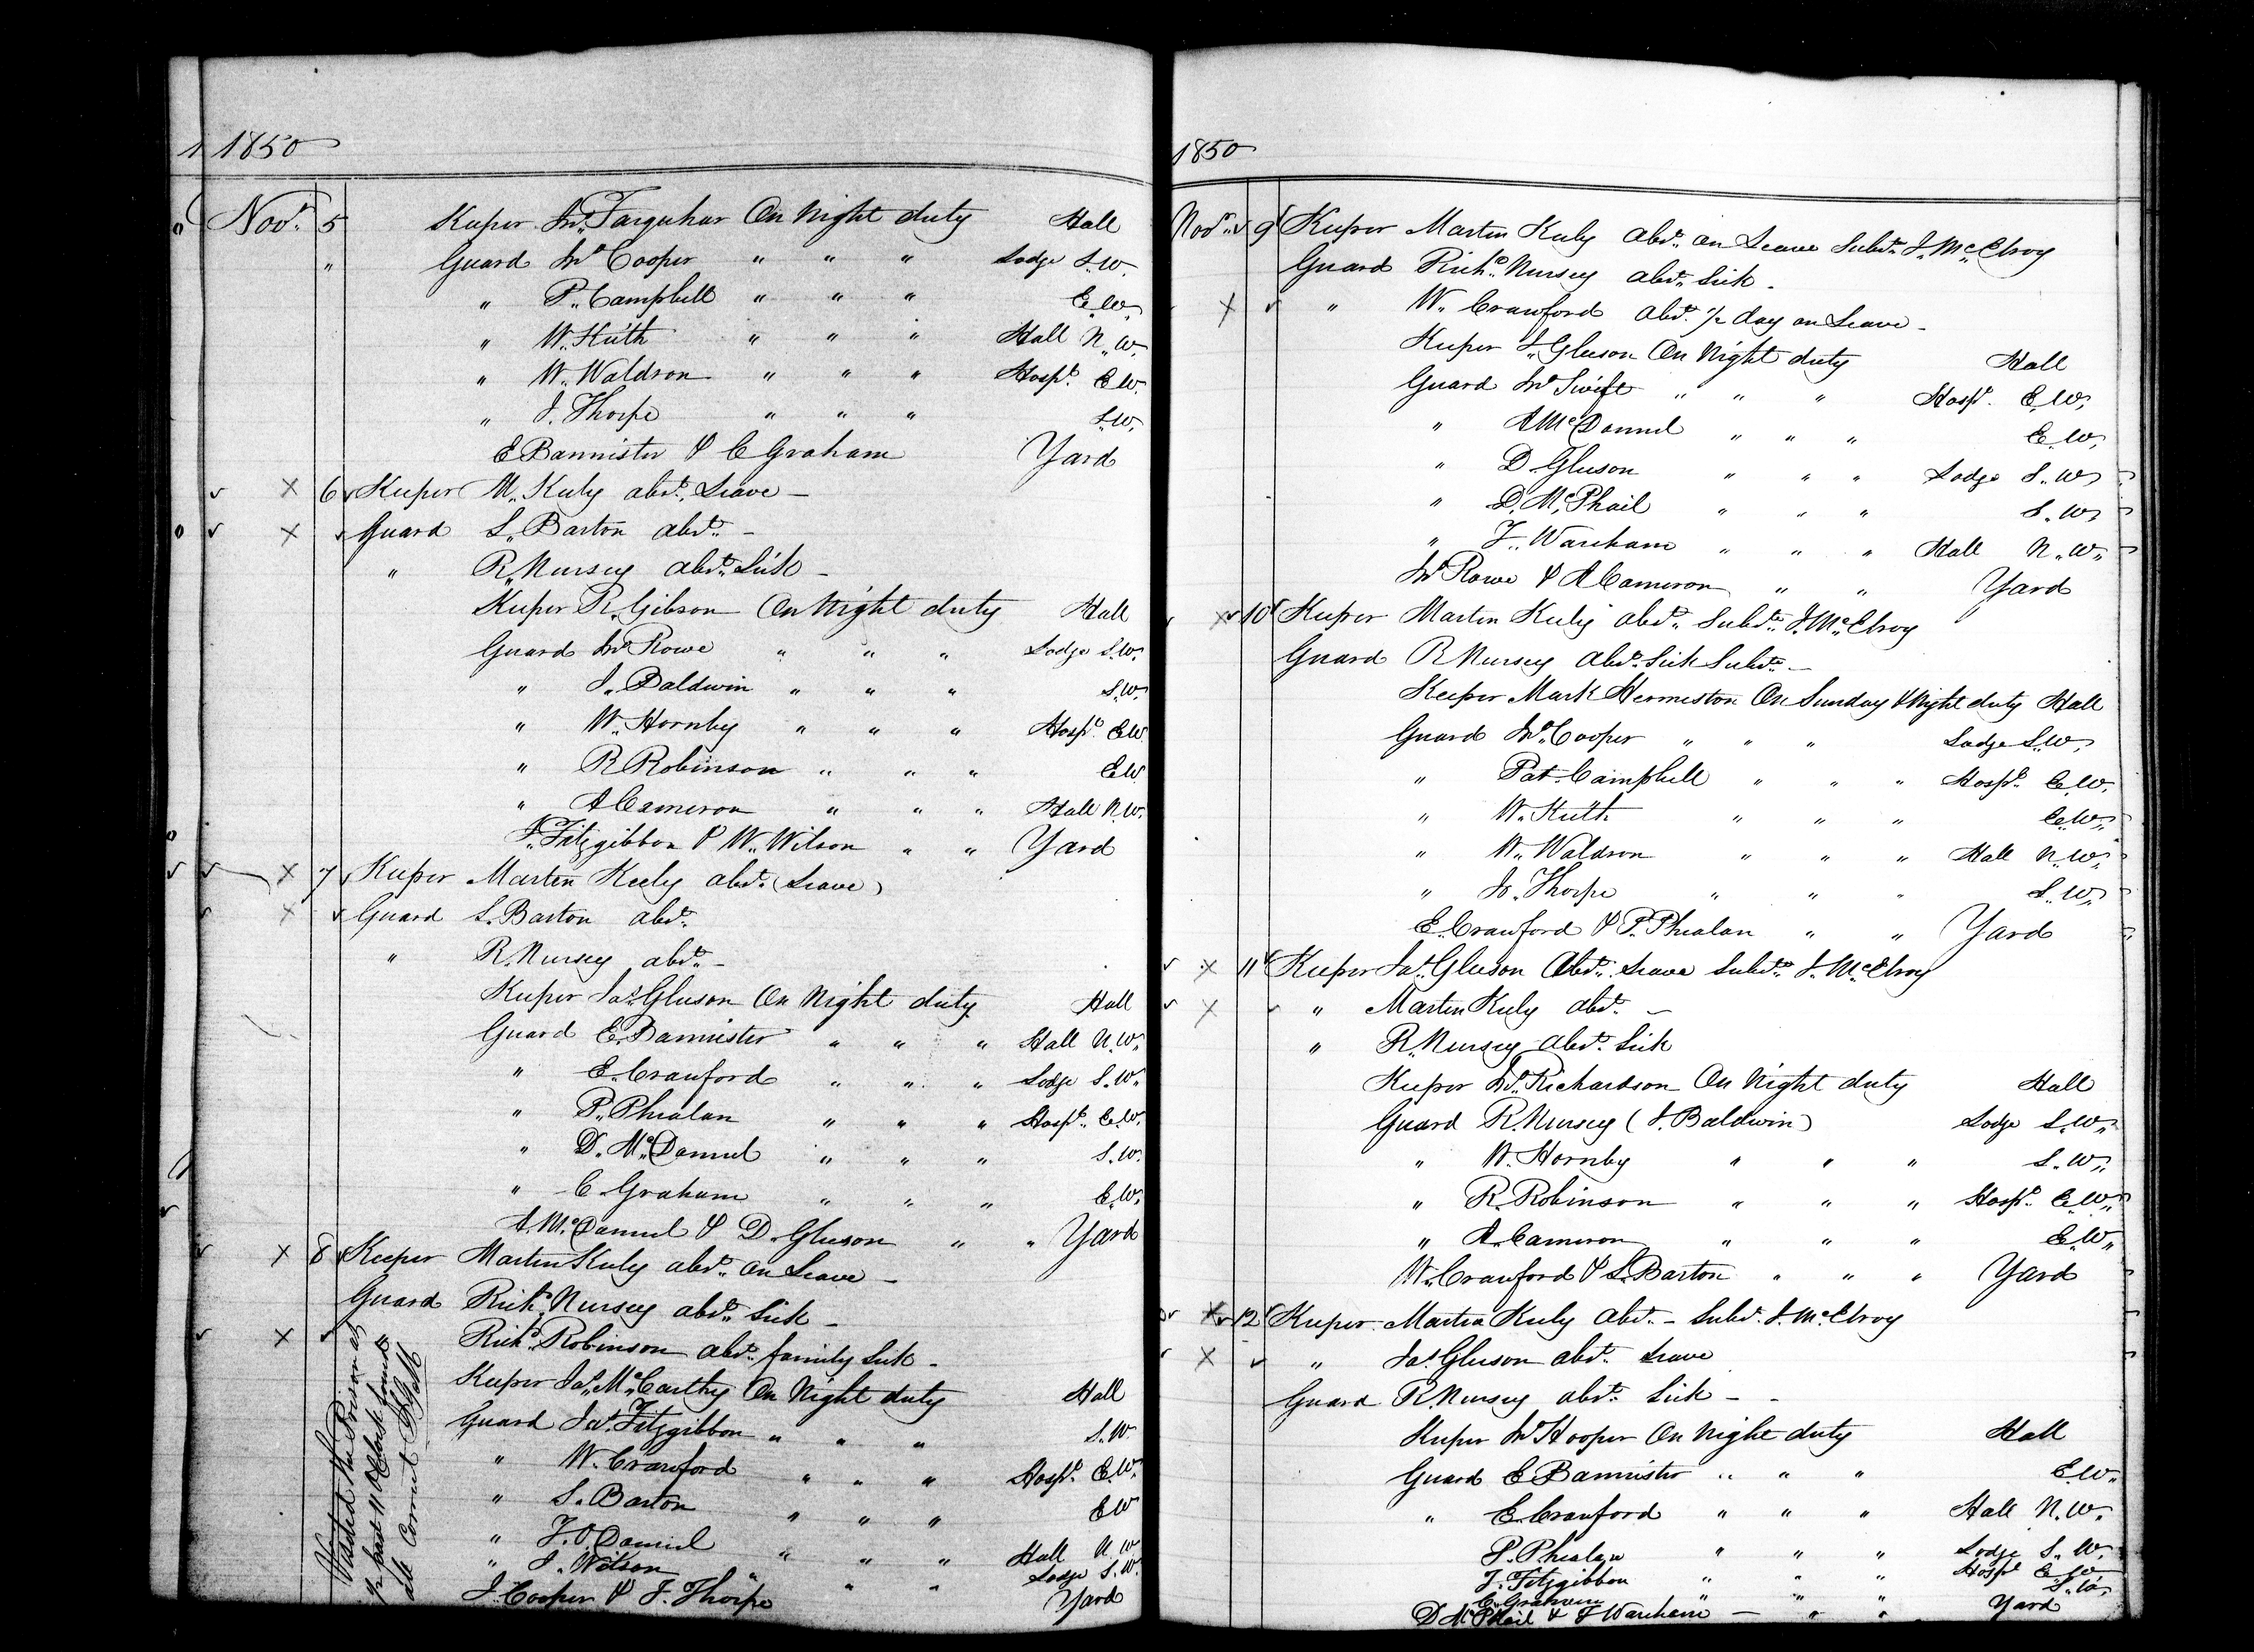 1850
Novr. 5 Keeper Jno. Farquhar On Night duty Hall
" Guard Jno. Cooper " " " Lodge S.W.
" P. Campbell " " " E.W.
" W. Keith " " " Hall N.W.
" W. Waldron " " " Hospl. E.W.
" J. Thorpe " " " S.W.
E Bannister & C Graham Yard
6 Keeper M. Keely abst. Leave –
Guard S. Barton abst. –
" R. Nursey abst. Sick –
Keeper R. Gibson On Night duty Hall
Guard Jno Rowe " " " Lodge S.W.
" J. Baldwin " " " S.W.
" W. Hornby " " " Hospl. E.W.
" R Robinson " " " E.W
" A Cameron " " " Hall N.W.
J. Fitzgibbon & W. Wilson " " Yard
7 Keeper Martin Keely abst. (Leave)
Guard S. Barton abst.
" R. Nursey abst. –
Keeper Jas. Gleeson On Night duty Hall
Guard E. Bannister " " " Hall N.W.
" E. Crawford " " " Lodge S.W.
" P. Phealan " " " Hospl. E.W.
" D. McDannel " " " S.W.
" C Graham " " " E.W.
A. McDannel & D. Gleeson " " Yard
8 Keeper Martin Keely abst. on Leave –
Guard Richd. Nursey abst. Sick –
Richd. Robinson abst. family Sick –
Keeper Jas. McCarthy On Night duty Hall
Guard Jas. Fitzgibbon " " " S.W.
" W. Crawford " " " Hospl. E.W.
" S. Barton " " " E W
" J. O. Daniel " " " Hall N W
" J. Wilson " " " Lodge S.W.
J. Cooper & J. Thorpe Yard
Visited the Prison at
1/2 past 11 O'Clock found
all Correct
1850
Novr. 9 Keeper Martin Keely abst. on Leave Subst. J. McElroy
Guard Richd. Nursey abst. Sick –
" W. Crawford abst. 1/2 day on Leave –
Keeper J. Gleeson On Night duty Hall
Guard Jno Swift " " " Hospl. E.W.
" A McDannel " " " E.W.
" D. Gleeson " " " Lodge S.W.
" D. McPhail " " " S.W.
" J. Wareham " " " Hall N.W.
Jno Rowe & A Cameron " " Yard
10 Keeper Martin Keely abst. Subst. J. McElroy
Guard R Nursey abst. Sick Subst. –
Keeper Mark Hermeston On Sunday & Night duty Hall
Guard Jno. Cooper " " " Lodge S.W.
" Pat. Campbell " " " Hospl. E.W.
" W. Keith " " " E.W.
" W. Waldron " " " Hall N.W.
" J. Thorpe " " " S.W.
E. Crawford & P. Phealan " " Yard
11 Keeper Jas. Gleeson Abst. Leave Subst. J. McElroy
" Martin Keely abst. –
" R. Nursey abst. Sick
Keeper Jno. Richardson On Night duty Hall
Guard R. Nursey (J. Baldwin) Lodge S.W.
" W. Hornby " " " S.W.
" R. Robinson " " " Hospl. E.W.
" A. Cameron " " " E.W.
W. Crawford & S. Barton " " " Yard
12 Keeper Martin Keely abst. – Subst. J. McElroy
" Jas. Gleeson abst. Leave
Guard R. Nursey abst. Sick – –
Keeper Jno Hooper On Night duty Hall
Guard E Bannister " " " E.W.
" E. Crawford " " " Hall N.W.
P. Phealan " " " Lodge S.W.
J. Fitzgibbon " " " Hospl E.W.
C. Graham " " S.W.
D McPhail & J Wareham – " " Yard